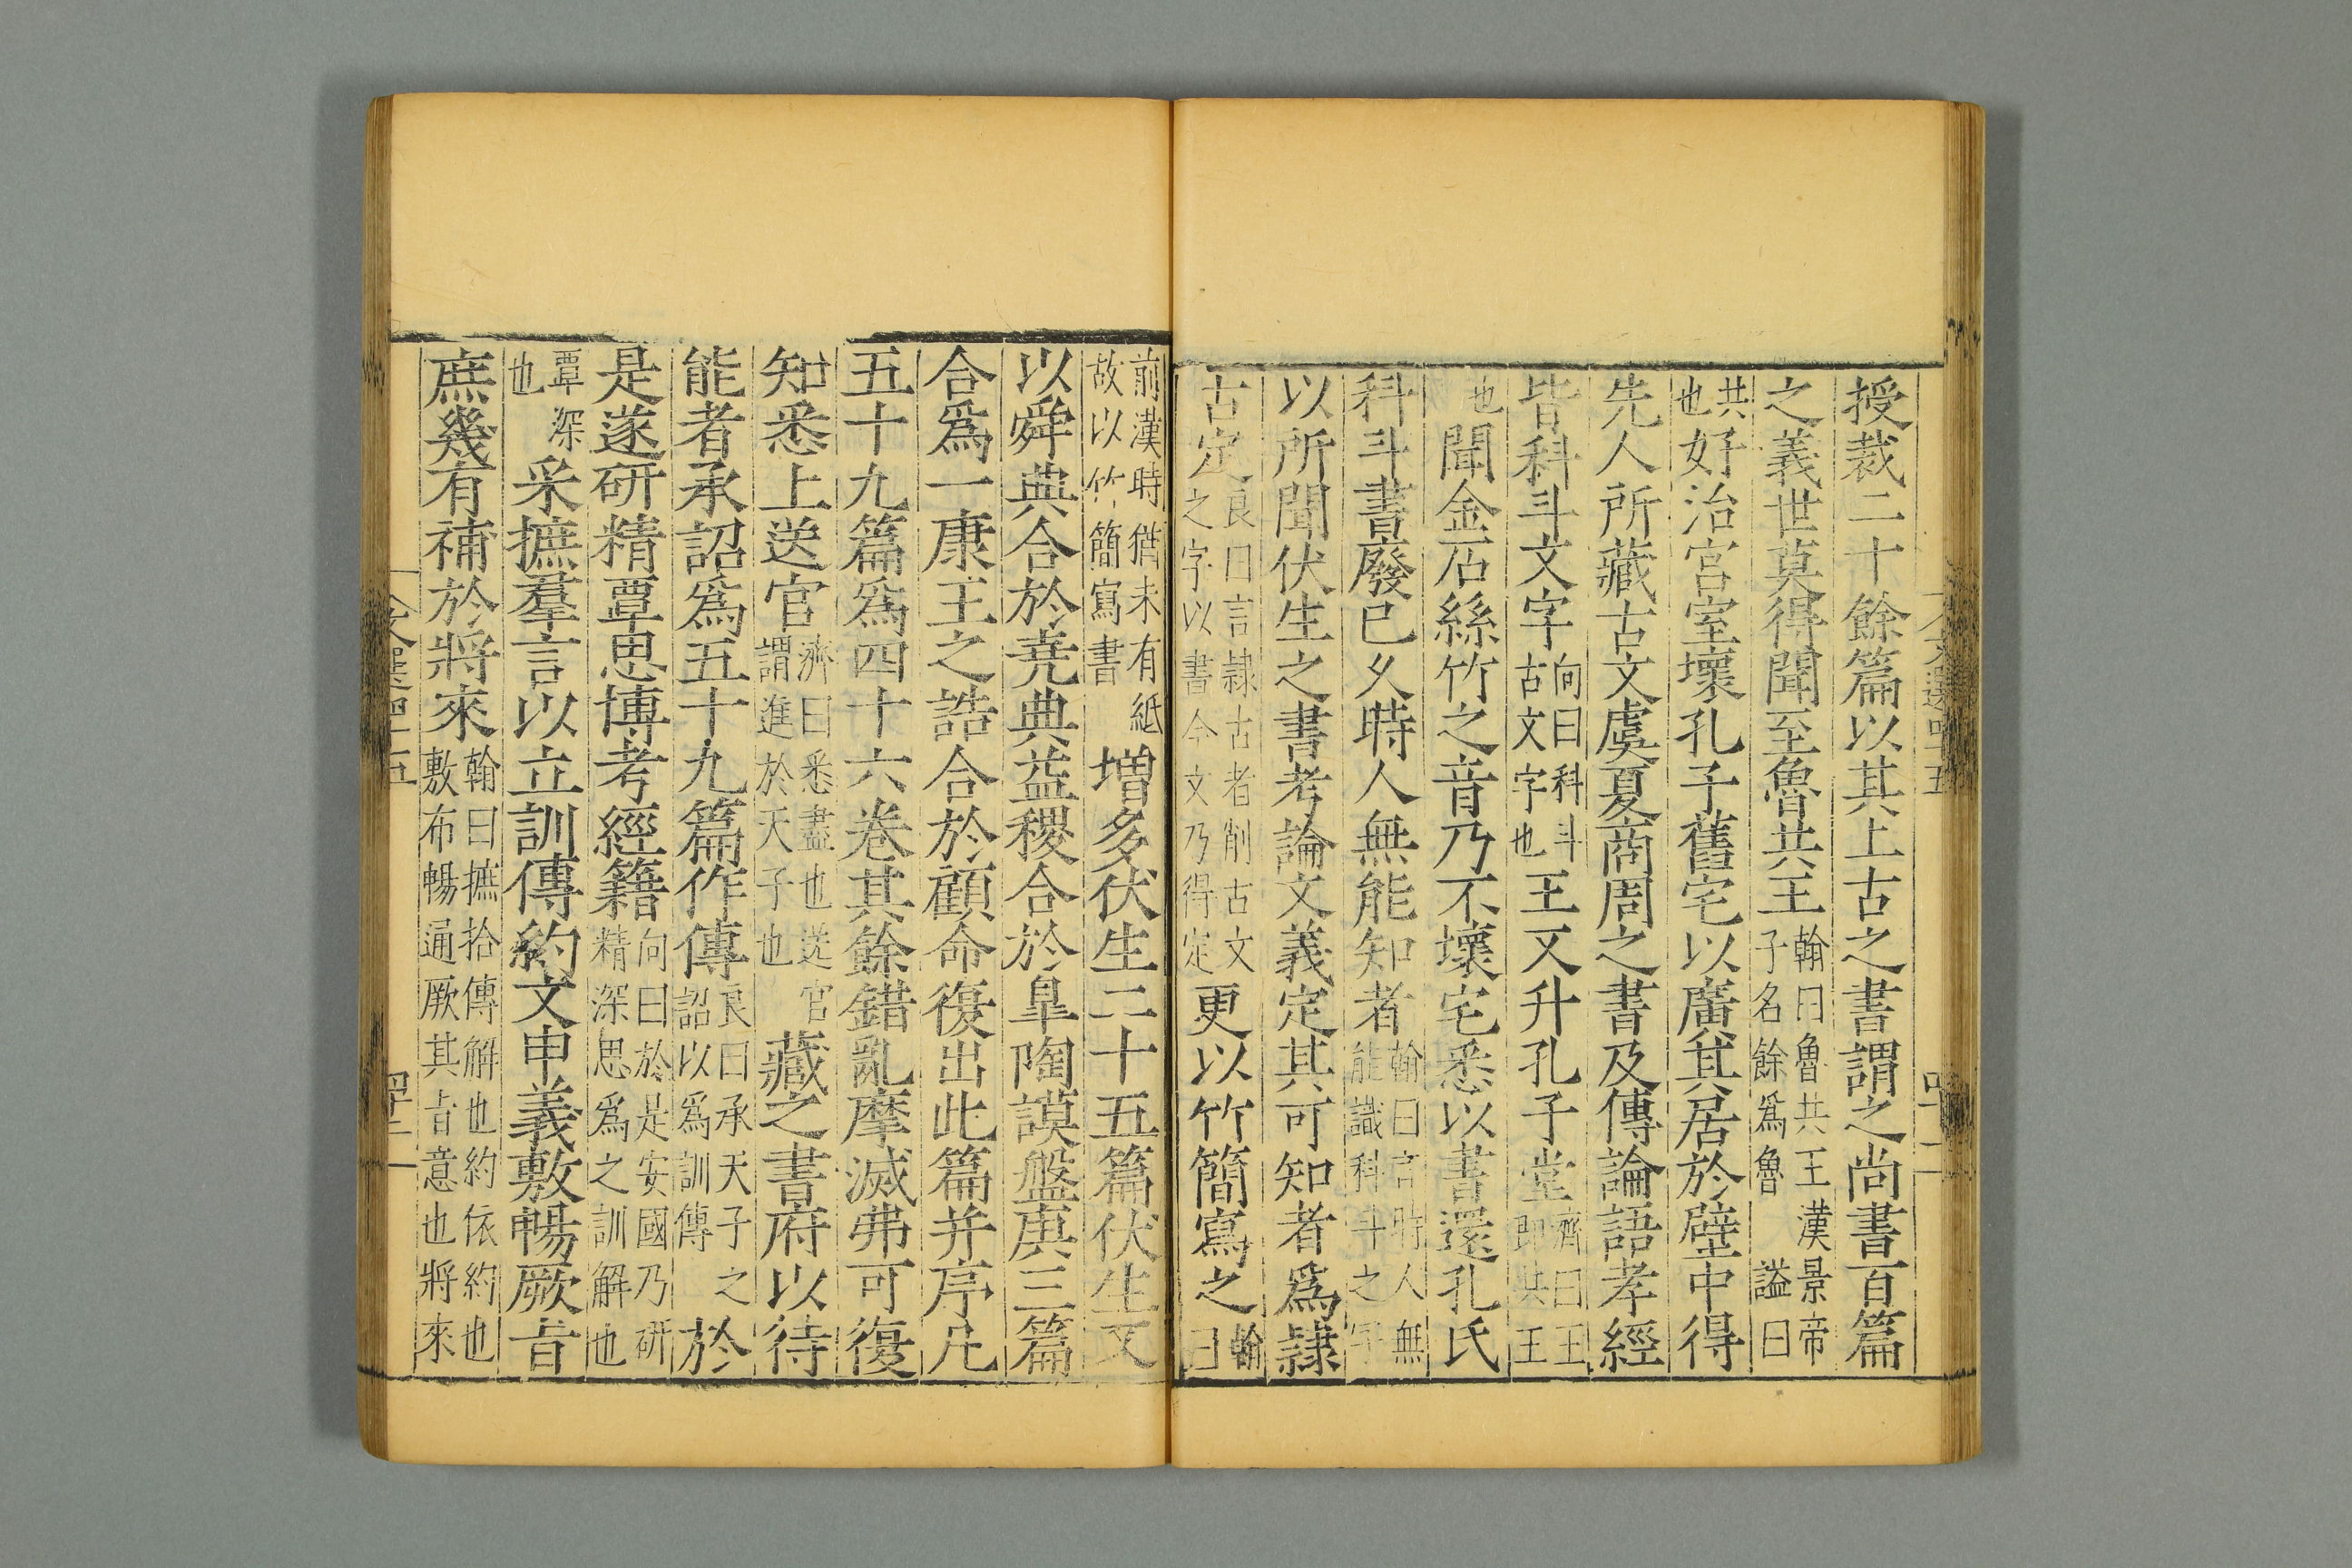 授裁二十餘篇以其上古之書謂之尚書百篇
之義世莫得聞至魯共王翰曰魯共王漢景帝子名餘爲魯 謚曰
共也好治宮室壞孔子舊宅以廣其居於壁中得
先人所藏古文虞夏商周之書及傳論語孝經
皆科斗文字向曰科斗古文字也王又升孔子堂濟曰王即共王
也聞金石絲竹之音乃不壞宅悉以書還孔氏
科斗書廢已久時人無能知者翰曰言時人無能識科斗之字
以所聞伏生之書考論文義定其可知者爲隷
古定良曰言隷古者削古文之字以書今文乃得定更以竹簡寫之翰曰
前漢時猶未有紙故以竹簡寫書增多伏生二十五篇伏生又
以舜典合於堯典益稷合於皐陶謨盤庚三篇
合爲一康王之誥合於顧命復出此篇并序凡
五十九篇爲四十六卷其餘錯亂摩滅弗可復
知悉上送官濟曰悉盡也送官謂進於天子也藏之書府以待
能者承詔爲五十九篇作傳良曰承天子之詔以爲訓傳於
是遂研精覃思博考經籍向曰於是安國乃研精深思爲之訓解也
覃深也采摭羣言以立訓傳約文申義敷暢厥旨
庶幾有補於將來翰曰摭拾傳解也約依約也敷布暢通厥其旨意也將來